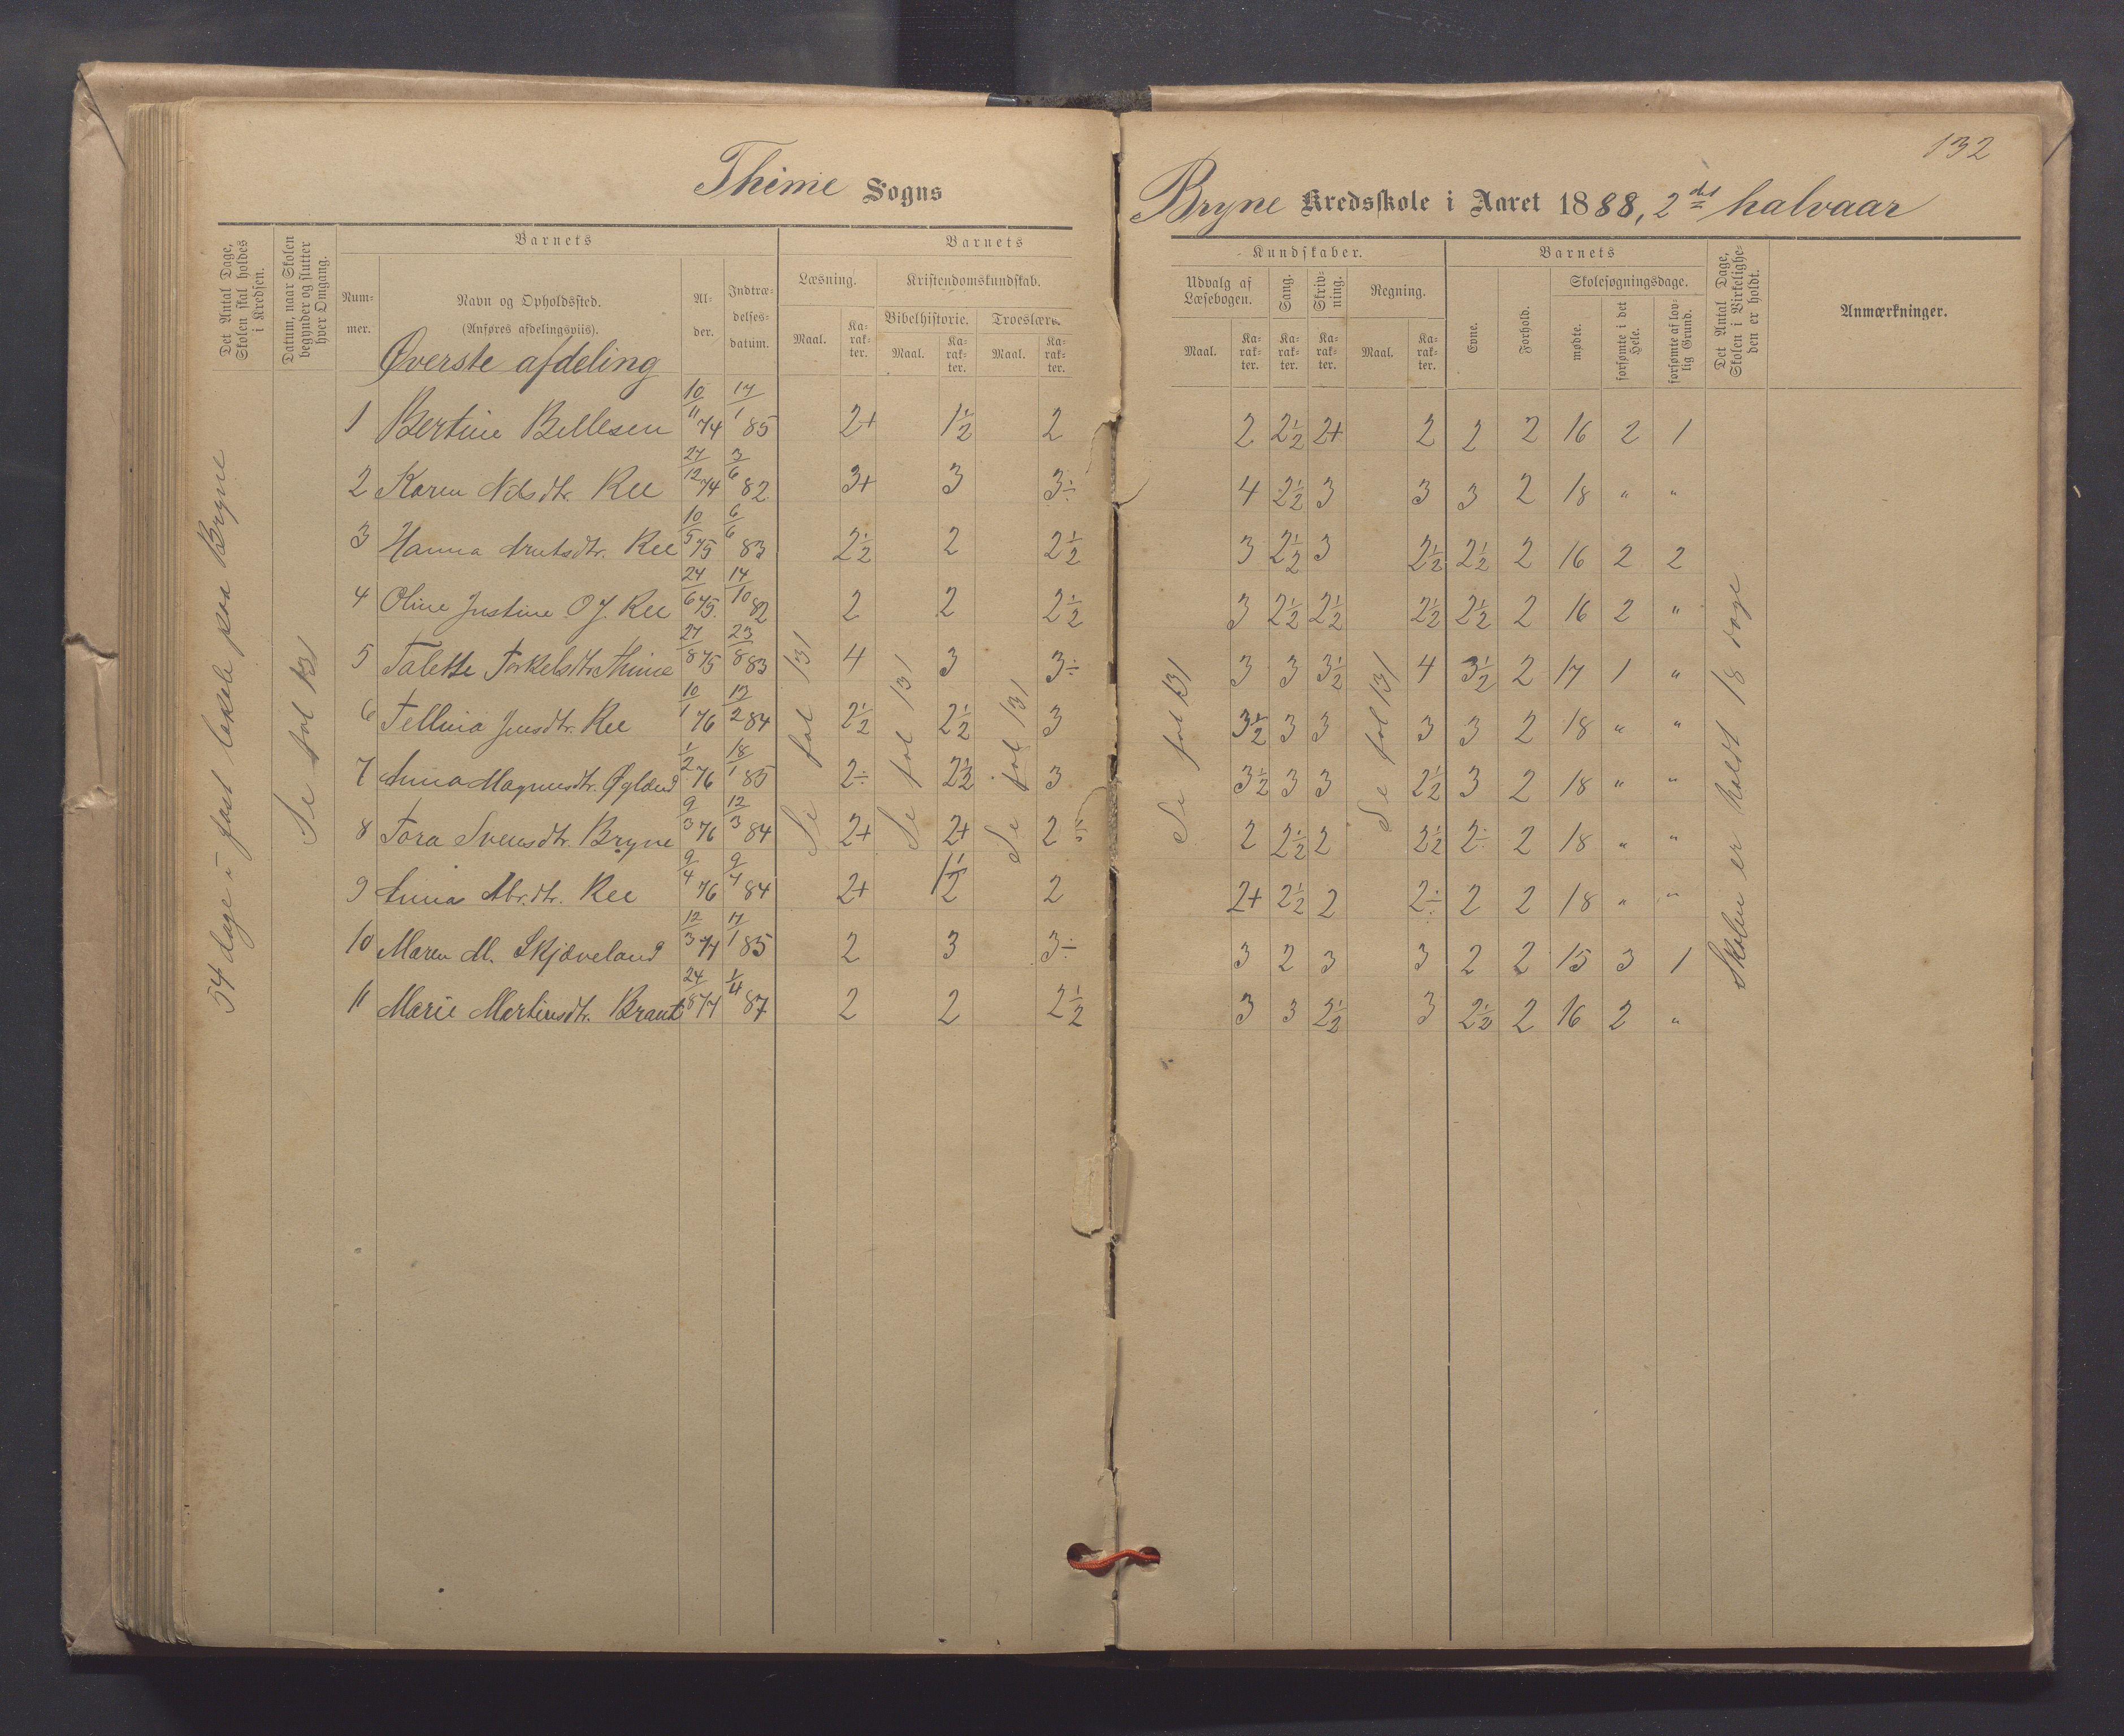 132
Thime Sogns
Bryne Kredsskole i Aaret 1888, 2det halvaar
Det Antal Dage, Skolen skal holdes i Kredsen.
Datum, naar Skolen begynder og slutter hver Omgang.
Barnets
Nummer.
Navn og Opholdssted.
(Anføres afdelingsviis).
Alder.
Indtrædelsesdatum.
Barnets
Læsning.
Kristendomskundskab.
Bibelhistorie.
Troeslære.
Maal.
Karakter.
Maal.
Karakter.
Maal.
Karakter.
Kundskaber.
Udvalg af Læsebogen.
Sang.
Skrivning.
Regning.
Maal.
Karakter.
Karakter.
Karakter.
Maal.
Karakter.
Barnets
Evne.
Forhold.
Skolesøgningsdage.
mødte.
forsømte i det Hele.
forsømte af lovlig Grund.
Det Antal Dage, Skolen i Virkeligheden er holdt.
Anmærkninger.
Øverste afdeling
1 Bertine Bellesen 10/11 74 17/1 85 2+ 1½ 2 2 2½ 2+ 2 2 2 16 2 1
2 Karen Nilsdtr. Ree 27/12 74 3/6 82 3+ 3 3÷ 4 2½ 3 3 3 2 18 " "
3 Hanna Ree 10/5 75 6/6 83 2½ 2 2½ 3 2½ 3 2½ 2½ 2 16 2 2
4 Oline Justine O J. Ree 24/6 75. 14/10 82 2 2 2½ 3 2½ 2½ 2½ 2½ 2 16 2 "
5 Talette Torkelsdtr. Thime 27/8 75 23/8 83 4 3 3÷ 3 3 3½ 4 3½ 2 17 1 "
6 Tellina Jensdtr. Ree 10/1 76 12/2 84 2½ 2½ 3 3½ 3 3 3 3 2 18 " "
7 Anna Magnusdtr. Øglænd 1/2 76 18/1 85 2÷ 2½ 3 3½ 3 3 2½ 3 2 18 " "
8 Tora Svensdtr. Bryne 9/3 76 12/3 84 2+ 2+ 2÷ 2 2½ 2 2½ 2÷ 2 18 " "
9 Anna Abr.dtr. Ree 9/4 76 9/4 84 2+ 1½ 2 2+ 2½ 2 2÷ 2 2 18 " "
10 Maren M. Skjæveland 12/3 74 17/1 85 2 3 3÷ 3 2 3 3 2 2 15 3 1
11 Marie Martinsdtr. Braut 24/8 74 1/4 87 2 2 2½ 3 3 2½ 3 2½ 2 16 2 "
54 dage i fast lokale paa Bryne
Se fol 131
Se fol 131
Se fol 131
Se fol 131
Se fol 131
Se fol 131
Skolen er holdt 18 dage